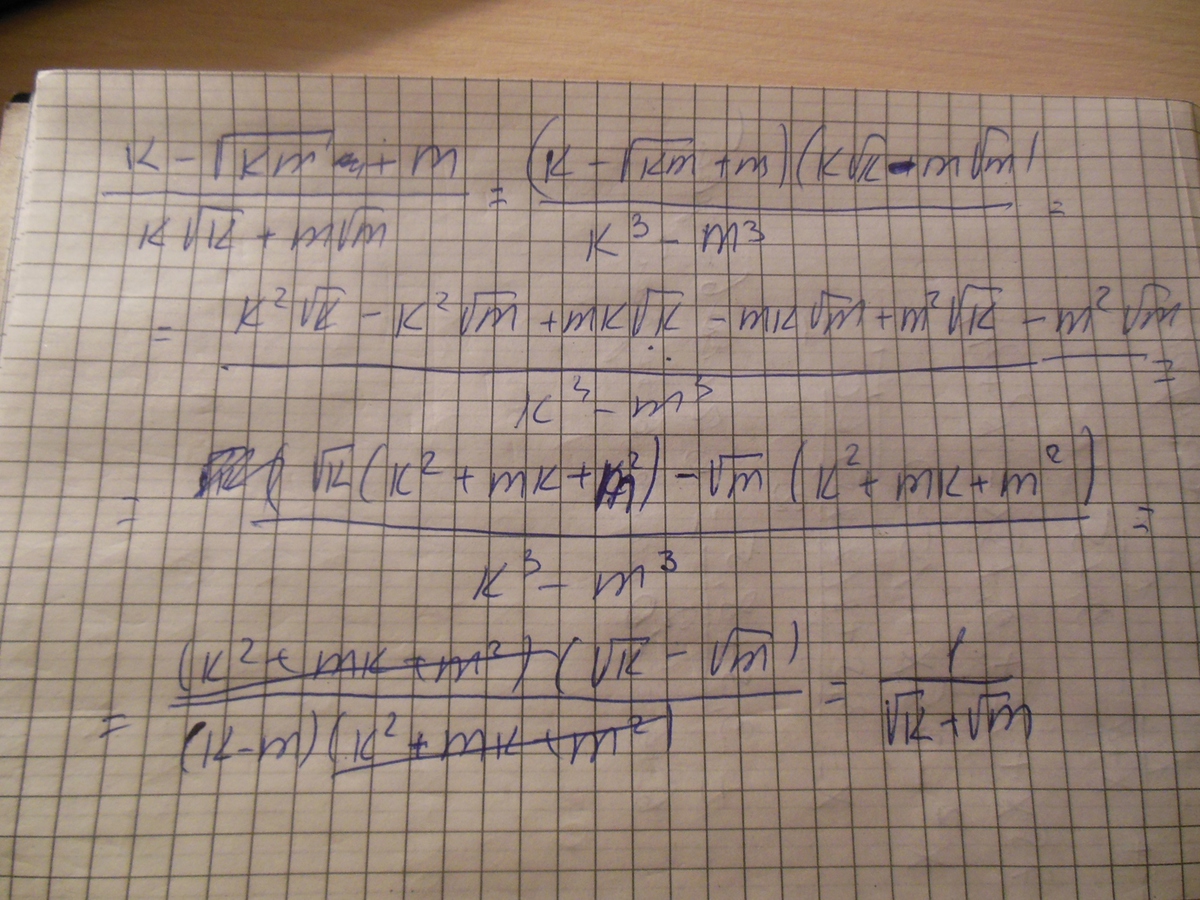 (k - √km + m) / (k√k + m√m) = (k - √km + m)(k√k - m√m) / (k³ - m³) =
= (k²√k - k²√m + mk√k - mk√m + m²√k - m²√m) / (k³ - m³) =
= (√k(k² + mk + m²) - √m(k² + mk + m²)) / (k³ - m³) =
= (k² + mk + m²)(√k - √m) / (k - m)(k² + mk + m²) = 1 / (√k + √m)